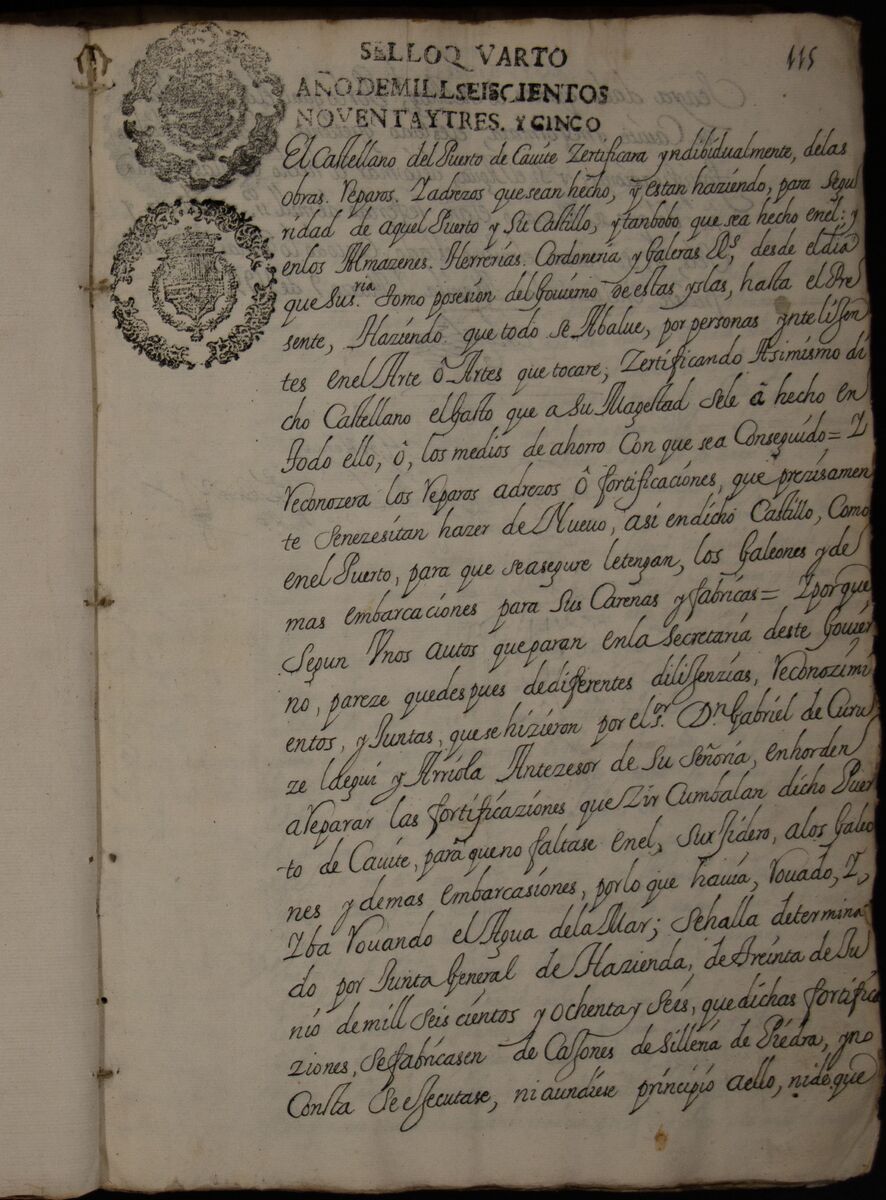 115
SELLO QVARTO
AÑO DE MILL SEISCIENTOS
NOVENTA Y TRES. Y CINCO
El Castellano del Puerto de Cauite Zertificara yndibidualmente, delas
obras. Reparos. Y adrezos que sean hecho, y estan haziendo, para segu
ridad de aquel Puerto y Su Castillo, y tanbobo que sea hecho enel: y
enlos Almazenes. Herrerias. Cordoneria y Galeras Rs, desde el dia
que Sus.ria tomo posesion del Gouierno de estas yslas, hasta el Pre
sente, Haziendo que todo se Abalue, por personas yntelissen
tes enel Arte ô Artes que tocare; Zertificando Asimismo di
cho Castellano el Gasto que a Su Magestad sele â hecho en
todo ello, ô, los medios de ahorro Con que sea Conseguido= Y
Reconozera los Reparos adrezos ô fortificaciones, que prezisamen
te senezesitan hazer de Nueuo, asi en dicho Castillo, Como
enel Puerto, para que seasegure letengan, los Galeones y de
mas embarcaciones para Sus Carenas y fabricas= Y porque
Segun Vnos autos que paran enla Secretaria deste Gouier
no, pareze quedespues dediferentes dilissenzias, Reconozimi
entos, y Juntas, que se hizieron por el sor. Dn Gabriel de Curu
zelaegui y Arriola Antezesor de Su Señoria, en horden
aReparar las fortificaziones que Zir Cumbalan dicho Puer
to de Cauite, para que no faltase enel, surjidero, alos Galeo
nes y demas embarcasiones, por lo que hauia, Rouado, Y,
Yba Rouando el Agua dela Mar; sehalla determina
do por Junta General de Hazienda, de treinta de Ju
nio de mill seis cientos y ochenta y seis, que dichas fortifica
ziones, se fabricasen de Cassones de silleria de Piedra, y no
Consta se essecutase, ni aundiese principio aello, nideque